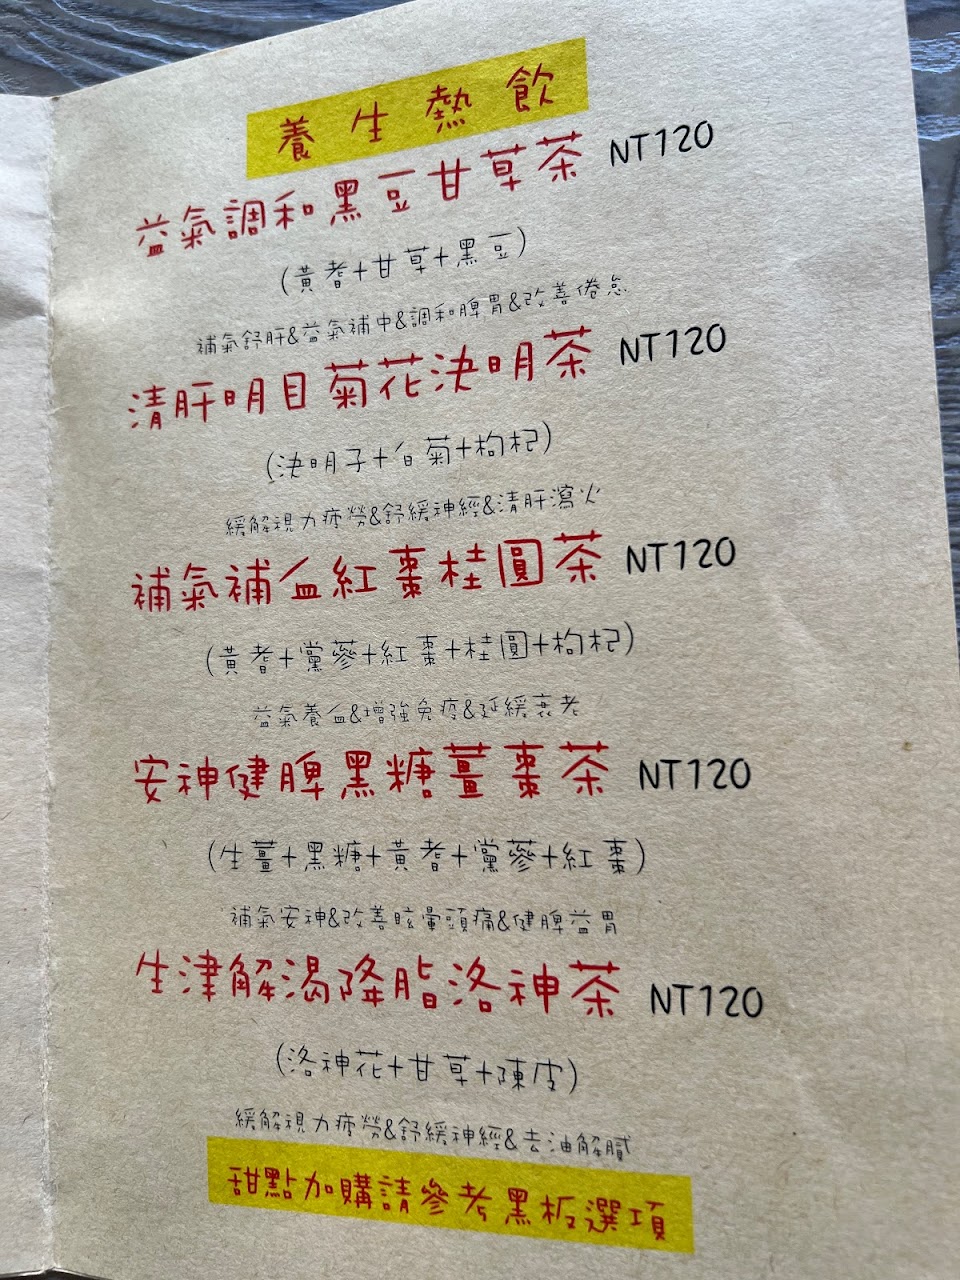 養生熱飲
益氣調和黑豆甘草茶 NT120
(黃耆+甘草+黑豆)
補氣舒肝&益氣補中&調和脾胃&改善倦怠
清肝明目菊花決明茶 NT120
(決明子+白菊+枸杞)
緩解視力疲勞&舒緩神經&清肝瀉火
補氣補血紅棗桂圓茶 NT120
(黃耆+黨蔘+紅棗+桂圓+枸杞)
益氣養血&增強免疫&延緩衰老
安神健脾黑糖薑棗茶 NT120
(生薑+黑糖+黃耆+黨蔘+紅棗)
補氣安神&改善眩暈頭痛&健脾益胃
生津解渴降脂洛神茶 NT120
(洛神花+甘草+陳皮)
緩解視力疲勞&舒緩神經&去油解膩
甜點加購請參考黑板選項